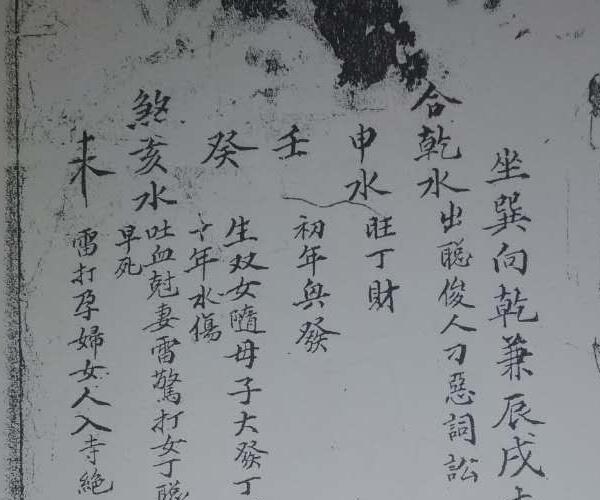 坐巽向乾兼辰戌
合乾水 出聪俊人刁惡詞訟
申水 旺丁財
壬 初年興發
癸 生双女隨母子大發丁
十年水傷
煞亥水 吐血尅妻雷驚打女丁聪
早死
未 雷打孕婦女人入寺絶